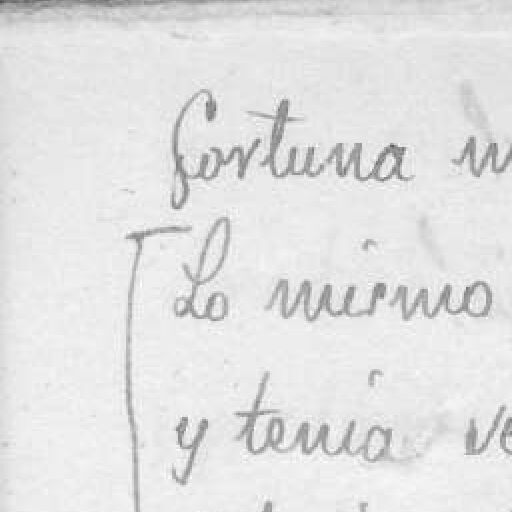 fortuna
Lo mismo
y tenia